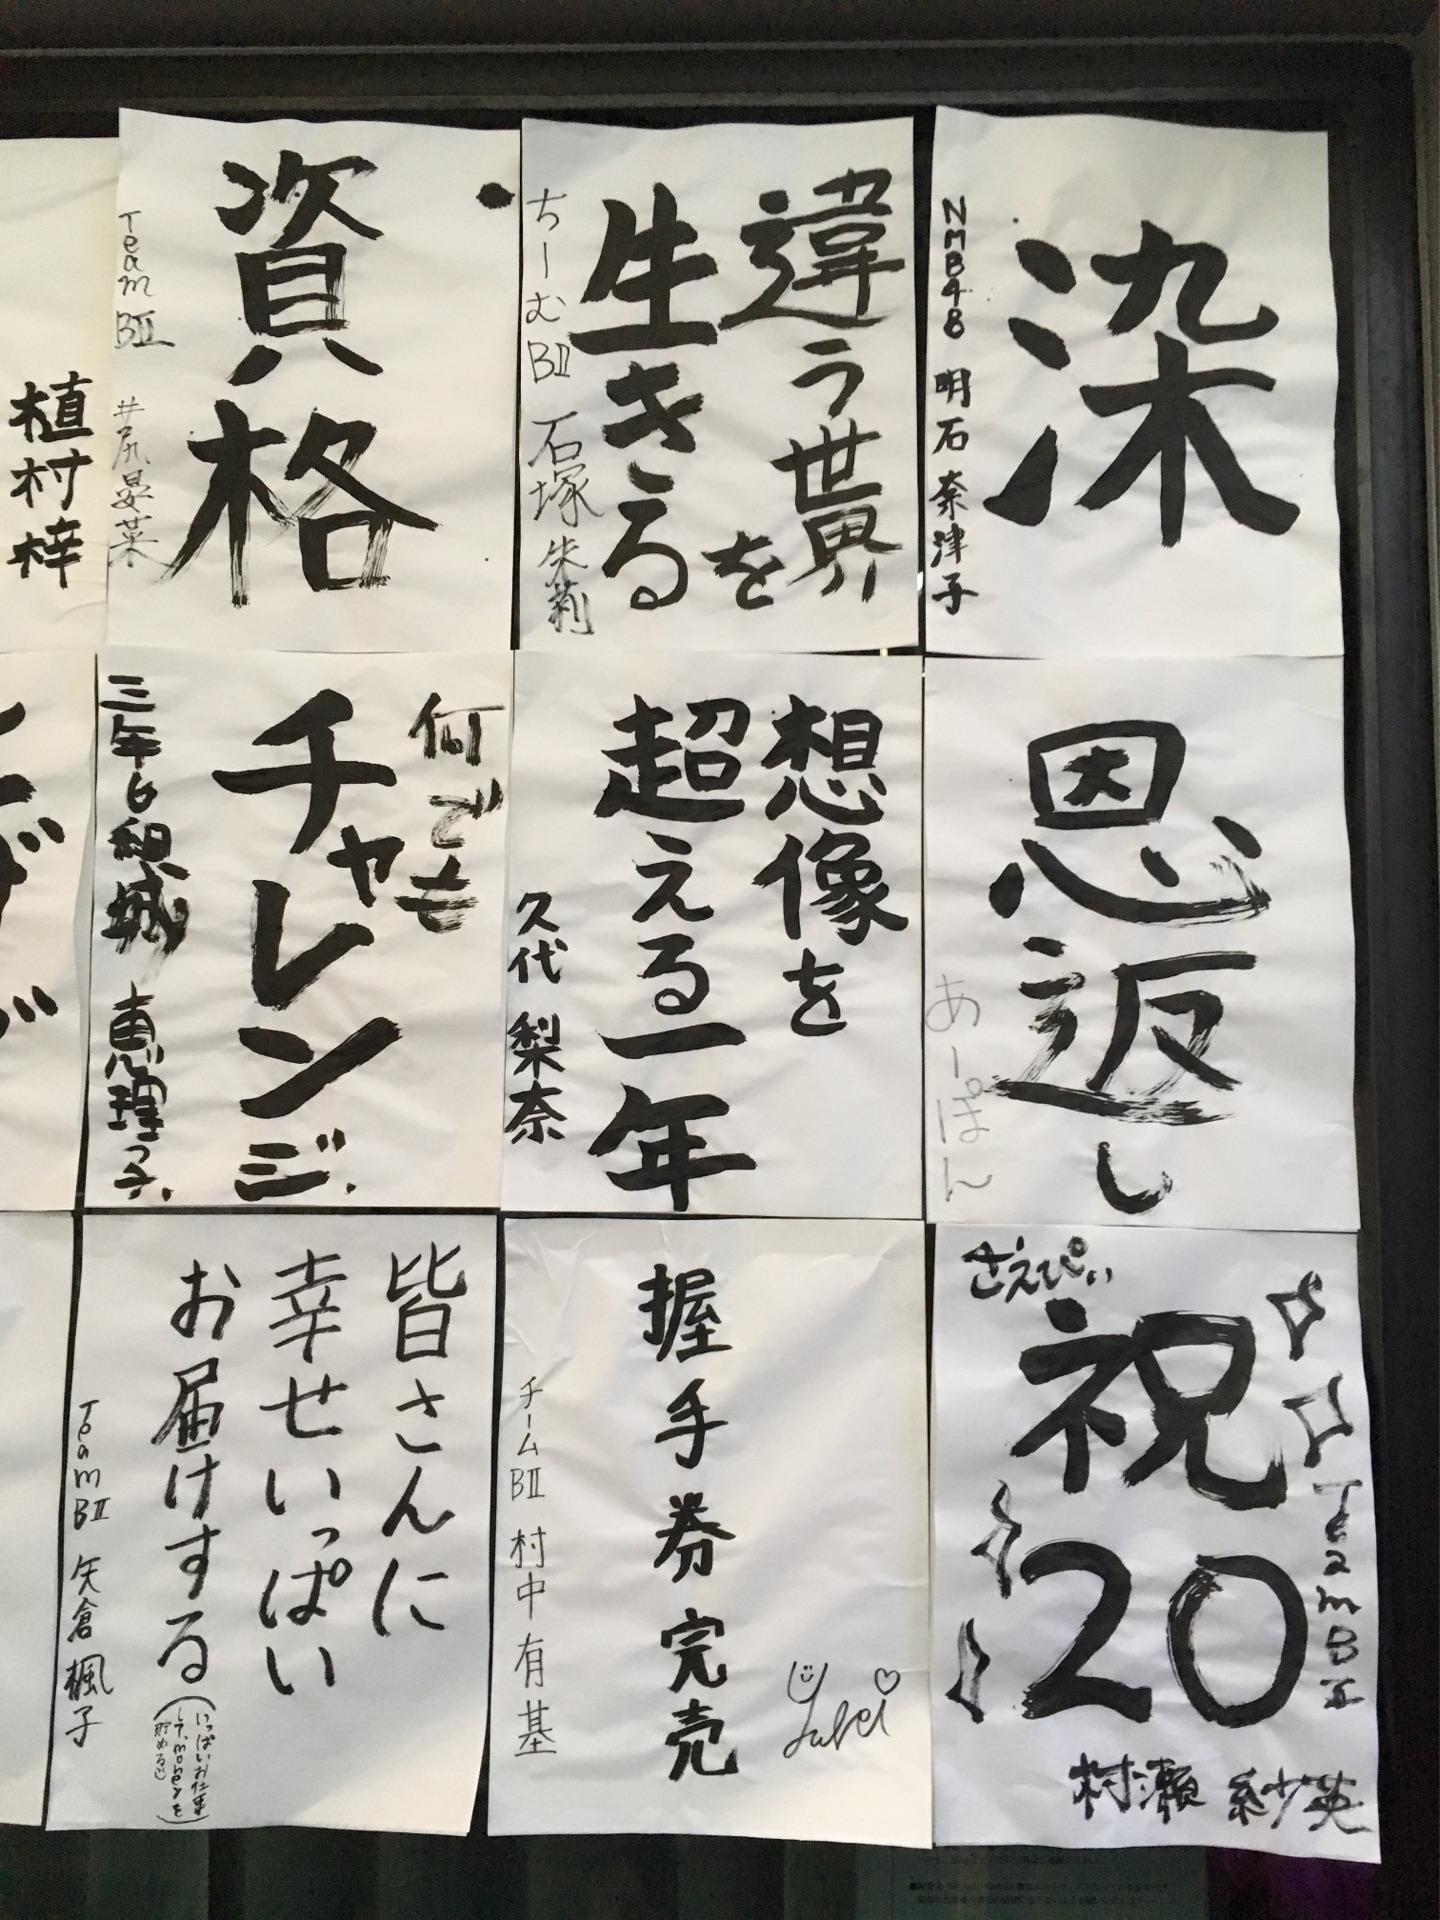 染
NMB48 明石奈津子
違う世界を
生きる
ちーむBⅡ 石塚朱莉
資格
TeamBⅡ 井尻晏菜
植村梓
恩返し
あーぽん
想像を
超える一年
久代梨奈
何でも
チャレンジ.
三年6組城 恵理子
さえぴぃ
祝
20
TeamBⅡ
村瀬 紗英
握手券完売
Yuki
チームBⅡ 村中有基
皆さんに
幸せいっぱい
お届けする
(いっぱいお仕事
して、moneyを
貯める)
TeamBⅡ 矢倉楓子